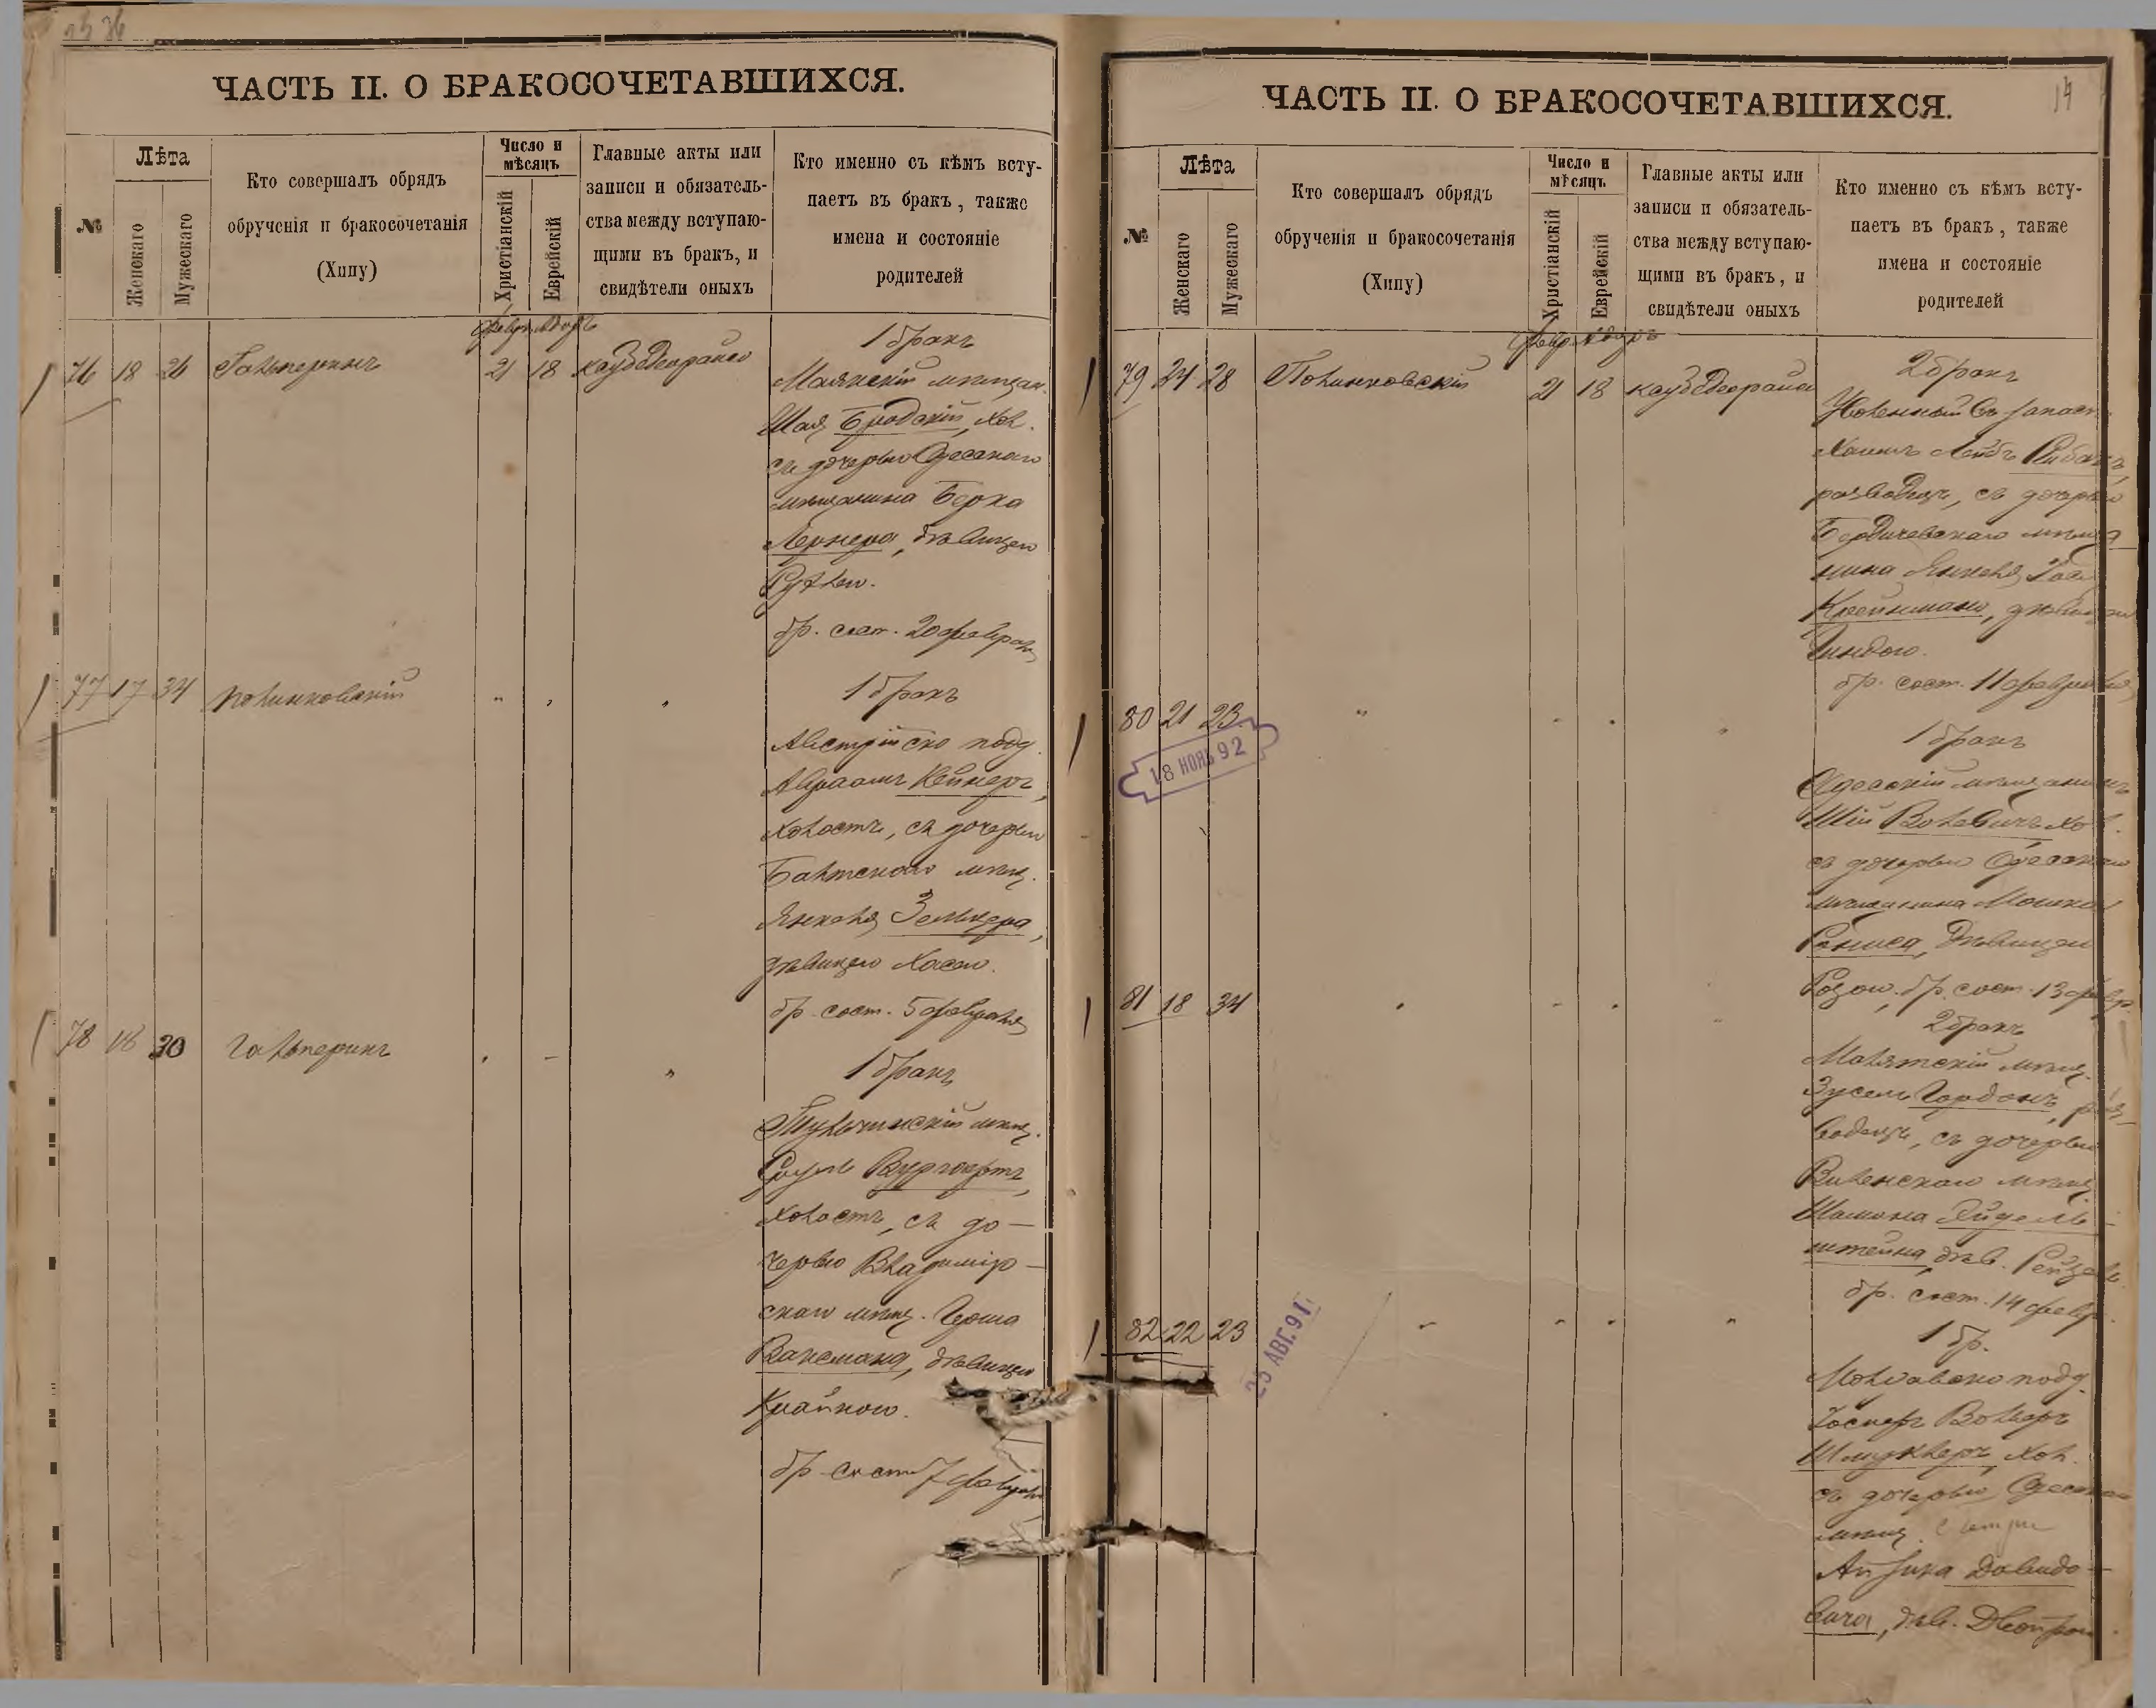 ЧАСТЬ II. О БРАКОСОЧЕТАВШИХСЯ.
№
Лѣта
Женскаго
Мужескаго
Кто совершалъ обрядъ
обрученія и бракосочетанія
(Хипу)
Число и
мѣсяцъ
Христіанскій
Еврейскій
Главные акты или
записи и обязатель-
ства между вступаю-
щими въ бракъ, и
свидѣтели оныхъ
Кто именно съ кѣмъ всту-
паетъ въ бракъ, также
имена и состояніе
родителей
76 18 26 Гальперинъ 21 18
1 бракъ
Маякскій мѣщан.
Шая Бродскій, хол.
съ дочерью Одесскаго
мѣщанина Берка
Лернера, дѣвицею
Рухлею.
бр. сост. 20 февраля
77 17 34 Полинковскій " " "
1 бракъ
Австрійско подд.
Авраамъ Кейнеръ,
холостъ, съ дочерью
Балтскаго мѣщ.
Янкеля Зельцера,
дѣвицею Хасею.
бр. сост. 5 февраля
78 18 30 Гальперинъ " " "
1 бракъ
Тульчинскій мѣщ.
Сруль Вургафтъ,
холостъ, съ до-
черью Владимір-
скаго мѣщ. Герша
Ваксмана, дѣвицею
бр. сост. 7 февраля
ЧАСТЬ II. О БРАКОСОЧЕТАВШИХСЯ.
14
№
Лѣта
Женскаго
Мужескаго
Кто совершалъ обрядъ
обрученія и бракосочетанія
(Хипу)
Число и
мѣсяцъ
Христіанскій
Еврейскій
Главные акты или
записи и обязатель-
ства между вступаю-
щими въ бракъ, и
свидѣтели оныхъ
Кто именно съ кѣмъ всту-
паетъ въ бракъ, также
имена и состояніе
родителей
79 24 28 Полинковскій 21 18
2 бракъ
Уволенный въ запасъ
Хаимъ Лейбъ Рыбакъ,
разводецъ, съ дочерью
Бердичевскаго мѣща-
нина Янкеля
Крейнмана, дѣвицею
Гиндою.
бр. сост. 11 февраля
80 21 23 " " " "
18 НОЯ 92
1 бракъ
Одесскій мѣщанинъ
Волевичъ хол.
съ дочерью Одесскаго
мѣщанина Мошка
дѣвицею
Розою. бр. сост. 13 февр.
81 18 34 " " " "
2 бракъ
Малятскій мѣщ.
Зусель Гордонъ, раз-
водецъ, съ дочерью
Виленскаго мѣщ.
Шломона Эйдель-
штейна, дѣв.
бр. сост. 14 февр.
82 22 23 " " " "
25 АВГ. 91
1 бр.
Молдавско подд.
хол.
съ дочерью Одесскаго
мѣщ.
Айзика Давидо-
вича, дѣв. Двойрою.